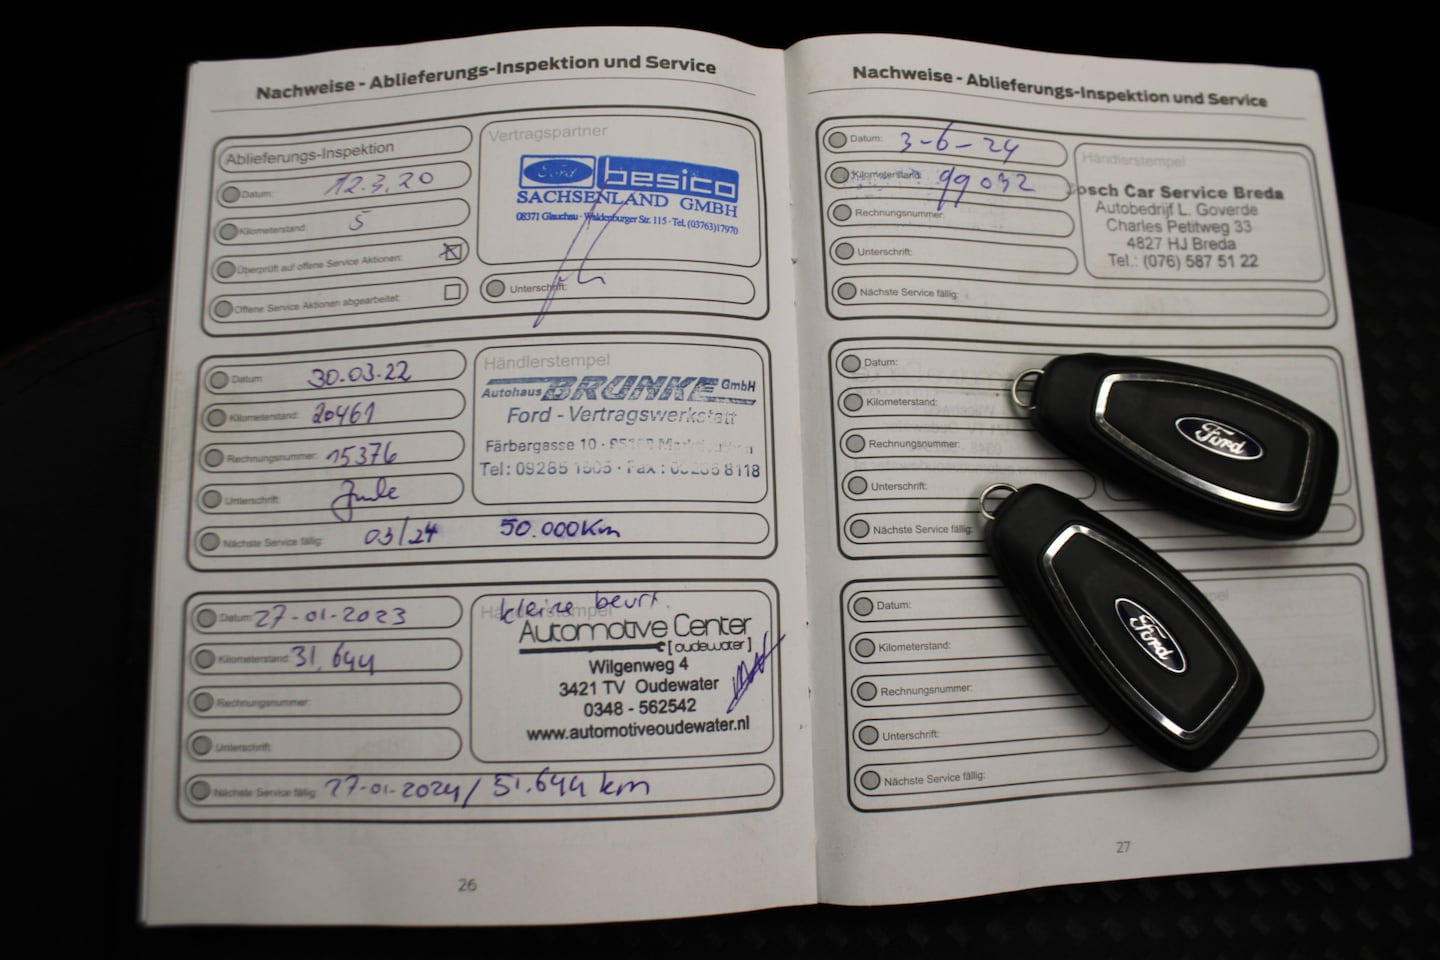 Nachweise - Ablieferungs-Inspektion und Service
Ablieferungs-Inspektion
Datum: 12.3.20
Kilometerstand: 5
Überprüft auf offene Service Aktionen:
Offene Service Aktionen abgearbeitet:
Vertragspartner
Ford besico
SACHSENLAND GMBH
08371 Glauchau · Waldenburger Str. 115 · Tel. (03763)17970
Unterschrift:
Datum: 30.03.22
Kilometerstand: 20461
Rechnungsnummer: 15376
Unterschrift:
Nächste Service fällig: 03/24 50.000Km
Händlerstempel
Autohaus BRUNKE GmbH
Ford - Vertragswerkstatt
Färbergasse 10
Tel: 09285 Fax: 8118
Datum: 27-01-2023
Kilometerstand: 31,644
Rechnungsnummer:
Unterschrift:
Nächste Service fällig: 27-01-2024 / 51.644 km
Händlerstempel
kleine beurt.
Automotive Center
[oudewater]
Wilgenweg 4
3421 TV Oudewater
0348 - 562542
www.automotiveoudewater.nl
26
Nachweise - Ablieferungs-Inspektion und Service
Datum: 3-6-24
Kilometerstand: 99032
Rechnungsnummer:
Unterschrift:
Nächste Service fällig:
Händlerstempel
Bosch Car Service Breda
Autobedrijf L. Goverde
Charles Petitweg 33
4827 HJ Breda
Tel.: (076) 587 51 22
Datum:
Kilometerstand:
Rechnungsnummer:
Unterschrift:
Nächste Service fällig:
Datum:
Kilometerstand:
Rechnungsnummer:
Unterschrift:
Nächste Service fällig:
27
Ford
Ford